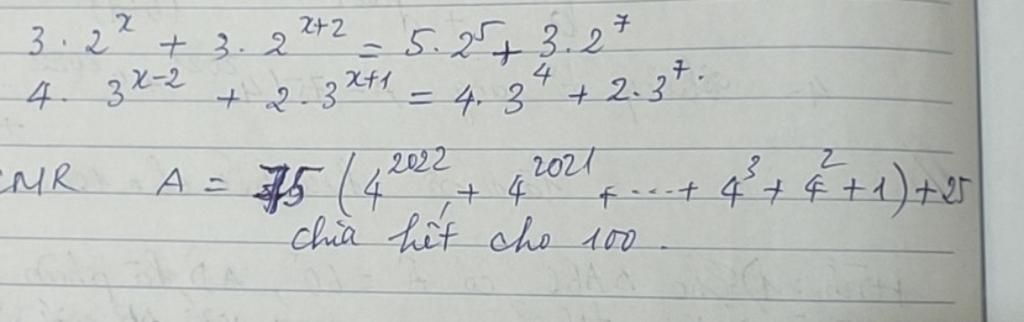 3 . 2^x + 3 . 2^{x+2} = 5 . 2^5 + 3 . 2^7
4 . 3^{x-2} + 2 . 3^{x+1} = 4 . 3^4 + 2 . 3^7 .
CMR A = 75 (4^{2022} + 4^{2021} + ... + 4^3 + 4^2 + 1) + 25
chia hết cho 100 .